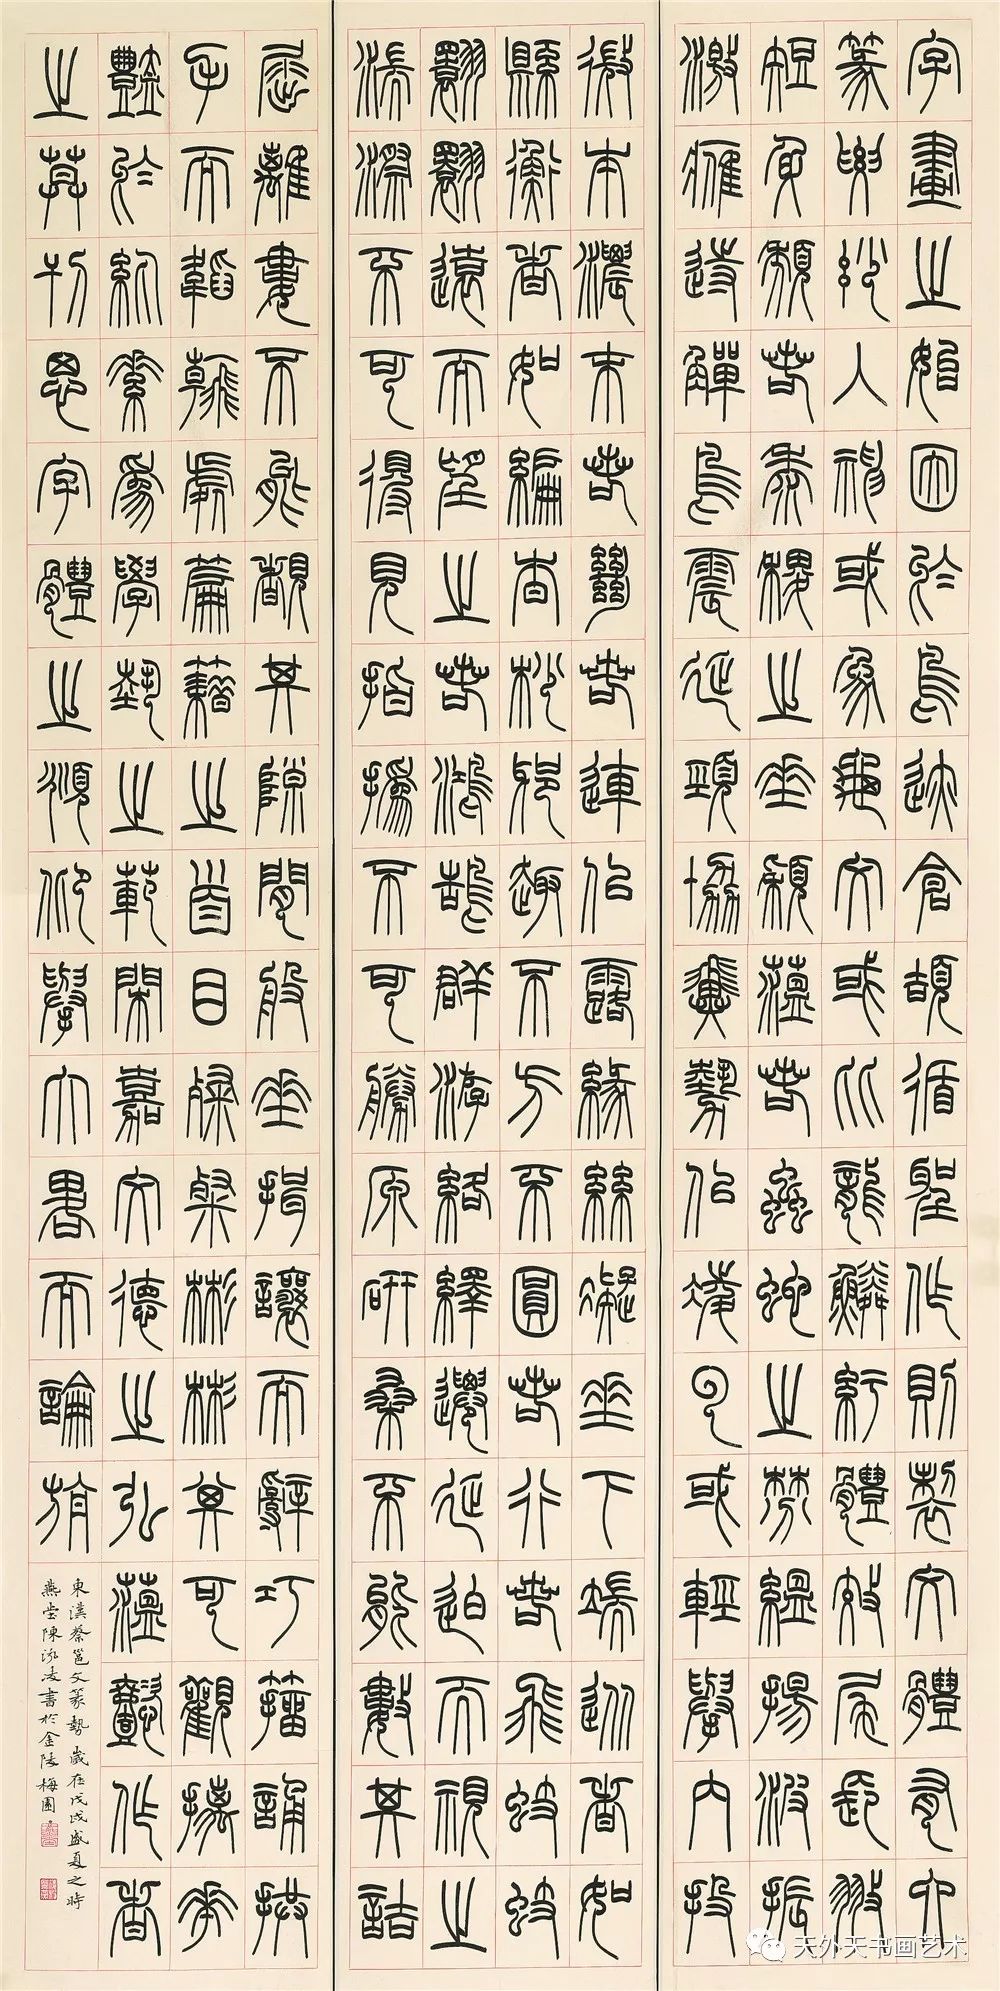 字畫之始因於鳥跡倉頡循聖作則製文體有六
篆要妙入神或象龜文或比龍鱗紆體效尾長翅
短身頹若黍稷之垂穎蘊若蟲蛇之棼縕揚波振
激鷹跱觶鳥震延頸協翼勢似凌雲或輕舉內投
微本濃末若絕若連似露緣絲凝垂下端從者如
縣衡者如編杳杪邪趣不方不圓若行若飛蚑蚑
翾翾遠而望之若鴻鵠群游絡繹遷延迫而視之
湍漈不可得見指撝不可勝原研桑不能數其詰
屈離婁不能覩其隙間般垂揖讓而辭巧籀誦拱
手而韜翰處篇籍之首目粲粲彬彬其可觀摛華
豔於紈素為學藝之範閑嘉文德之弘蘊懿作者
之莫刊思字體之俯仰舉大略而論旃
東漢蔡邕文篆勢歲在戊戌盛夏之時
燕堂陳泓凌書於金陵梅園
天外天书画艺术